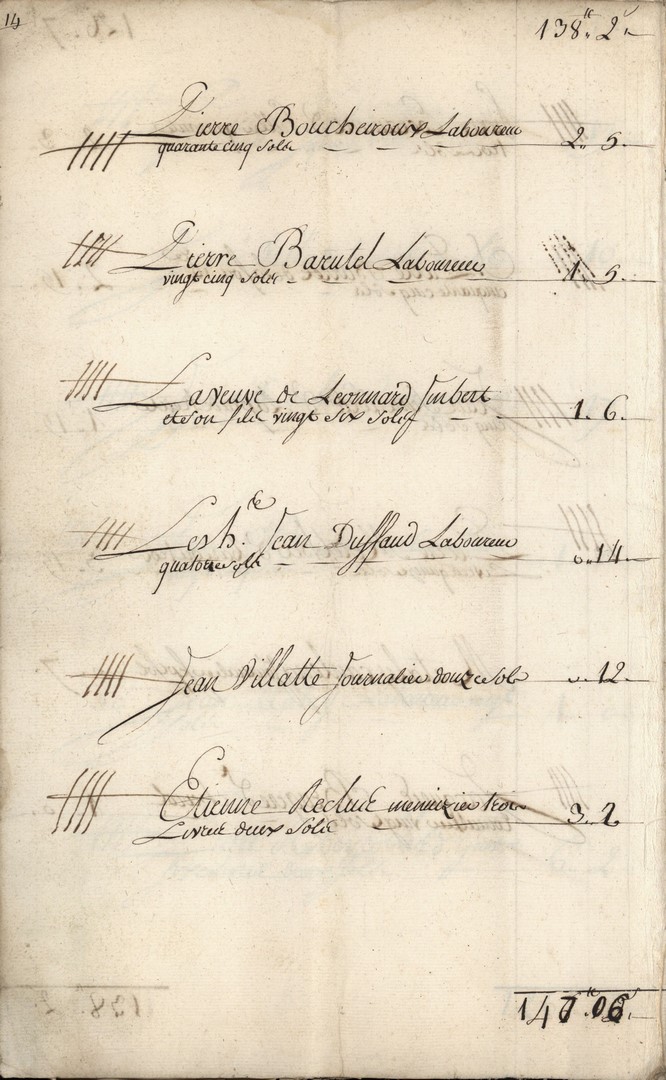 14
138.. 2.
Pierre Boucheiroux Laboureur
quarante cinq sols 2.. 5.
Pierre Barutel Laboureur
vingt cinq sols 1. 5.
La veuve de Leonnard Imbert
et son fils vingt six sols 1. 6.
Les h. Jean Duffaud Laboureur
quatorze sols 0.. 14.
Jean Villatte Journalier douze sols 0.. 12.
Etienne Recluz menuizier trois
Livres deux sols 3.. 2